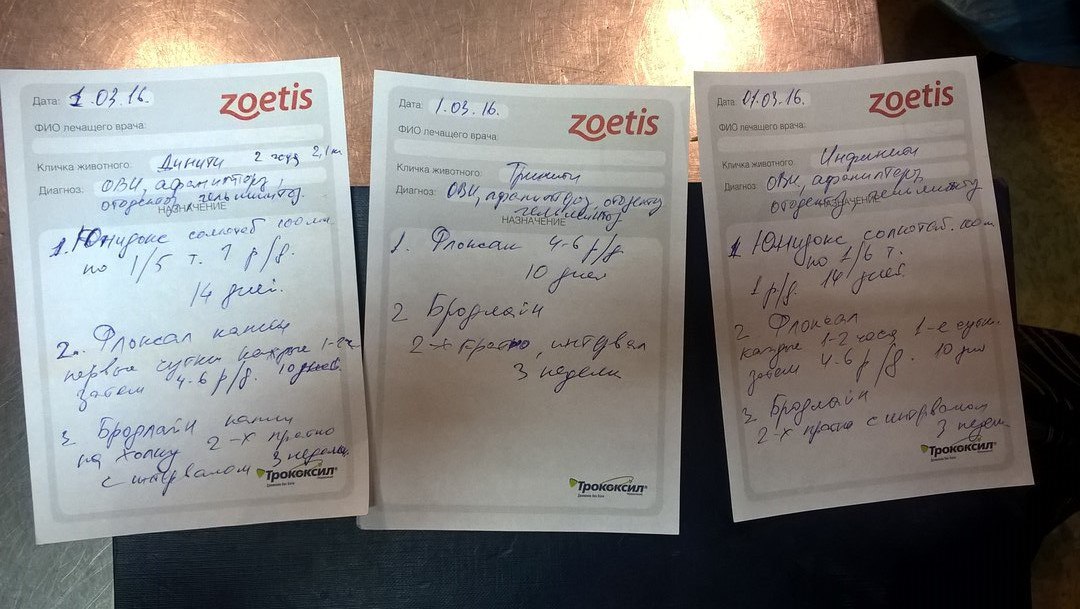 Дата: 1.03.16.
zoetis
ФИО лечащего врача:
Кличка животного: Динити 2 года 2,1 кг
Диагноз: ОВИ, афаниптероз,
отодектоз, гельминтоз.
НАЗНАЧЕНИЕ
1. Юнидокс солютаб 100 мг
по 1/5 т. 1 р/д.
14 дней.
2. Флоксал капли
первые сутки каждые 1-2ч
затем 4-6 р/д. 10 дней
3 Бродлайн капли
на холку 2-х кратно
с интервалом 3 недели
Трококсил
Дата: 1.03.16.
zoetis
ФИО лечащего врача:
Кличка животного: Тринити
Диагноз: ОВИ, афаниптероз, отодектоз
гельминтоз
НАЗНАЧЕНИЕ
1. Флоксал 4-6 р/д
10 дней
2 Бродлайн
2-х кратно, интервал
3 недели
Трококсил
Дата: 01.03.16.
zoetis
ФИО лечащего врача:
Кличка животного: Инфинити
Диагноз: ОВИ, афаниптероз,
отодектоз, гельминтоз
НАЗНАЧЕНИЕ
1 Юнидокс солютаб
по 1/6 т.
1 р/д. 14 дней
2 Флоксал
каждые 1-2 часа 1-е сутки
затем 4-6 р/д. 10 дн
3 Бродлайн
2-х кратно с интервалом
3 недели
Трококсил